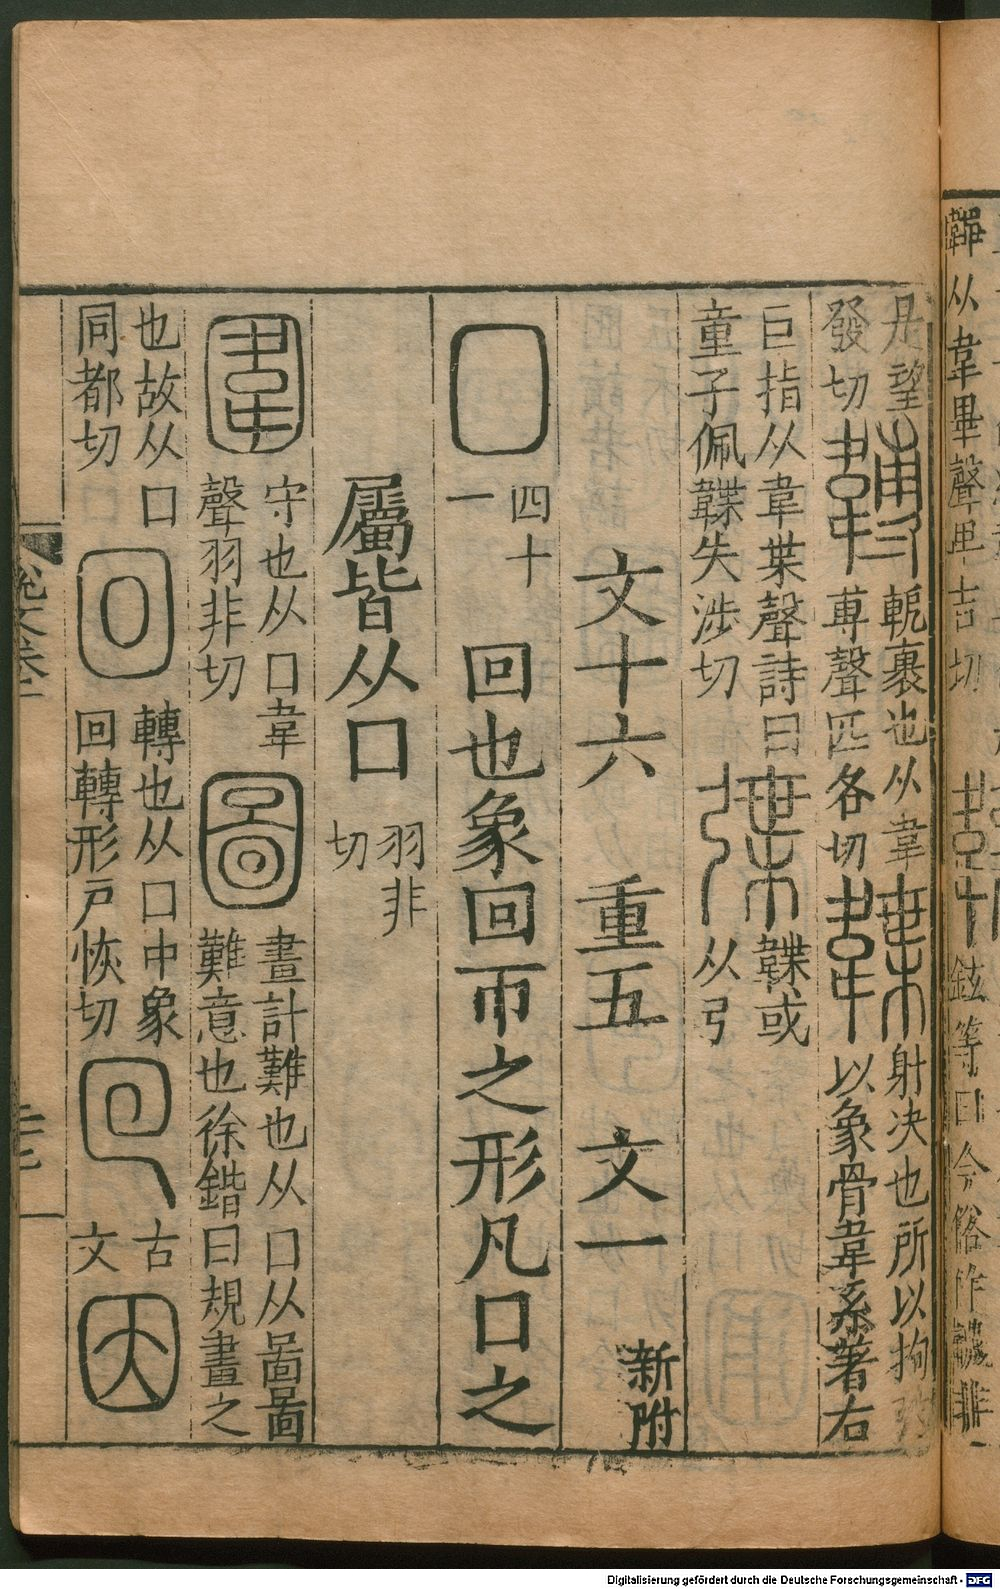 韠从韋畢聲卑吉切
鉉等曰今俗作韈非
是望發切 䪙 軶裹也从韋尃聲匹各切 韘 射決也所以拘弦以象骨韋系著右
巨指从韋枼聲詩曰童子佩韘失涉切 弽 韘或从弓
文十六 重五 文一 新附
囗 四十一 回也象回帀之形凡囗之
屬皆从囗 羽非切
圍 守也从囗韋聲羽非切 圖 畫計難也从囗从啚啚難意也徐鍇曰規畫之
也故从囗同都切 回 轉也从囗中象回轉形戶恢切 囘 古文 因
Digitalisierung gefördert durch die Deutsche Forschungsgemeinschaft - DFG